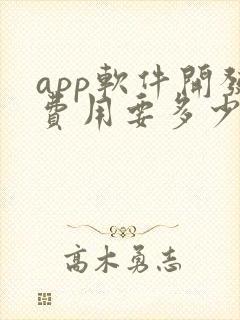 app軟件開發
費用要多少
高木勇志